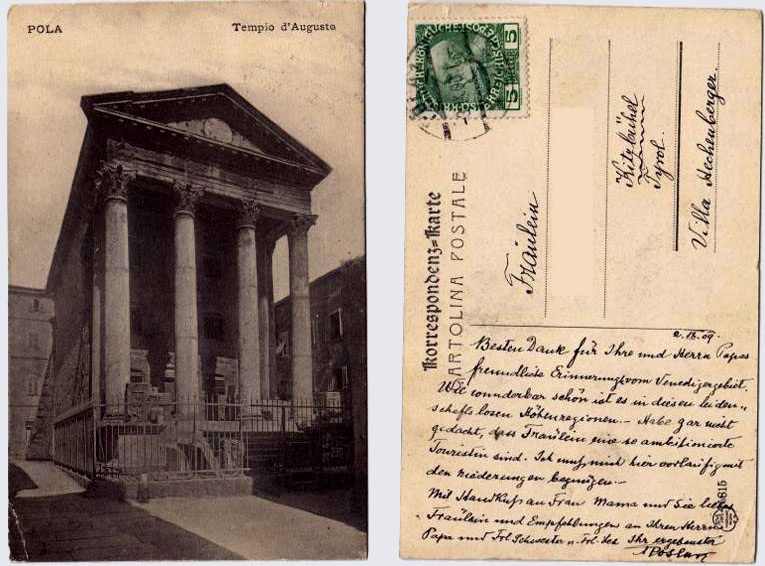 POLA
Tempio d'Augusto
5
5
Korrespondenz=Karte
CARTOLINA POSTALE
Fräulein
Kitzbühel
Tyrol.
Villa Hechenberger.
09.
Besten Dank für Ihre und Herrn Papas
freundliche Erinnerung vom Venedigergebiet.
Wie wunderbar schön ist es in diesen leiden„
schaftslosen Höhenregionen – Habe gar nicht
gedacht, dass Fräulein eine so ambitionierte
Touristin sind. Ich muß mich hier vorläufig mit
den Niederungen begnügen –
Mit Handkuß an Frau Mama und Sie liebes
Fräulein und Empfehlungen an Ihren Herrn
Papa und Frl Schwester Ihr ergebenster